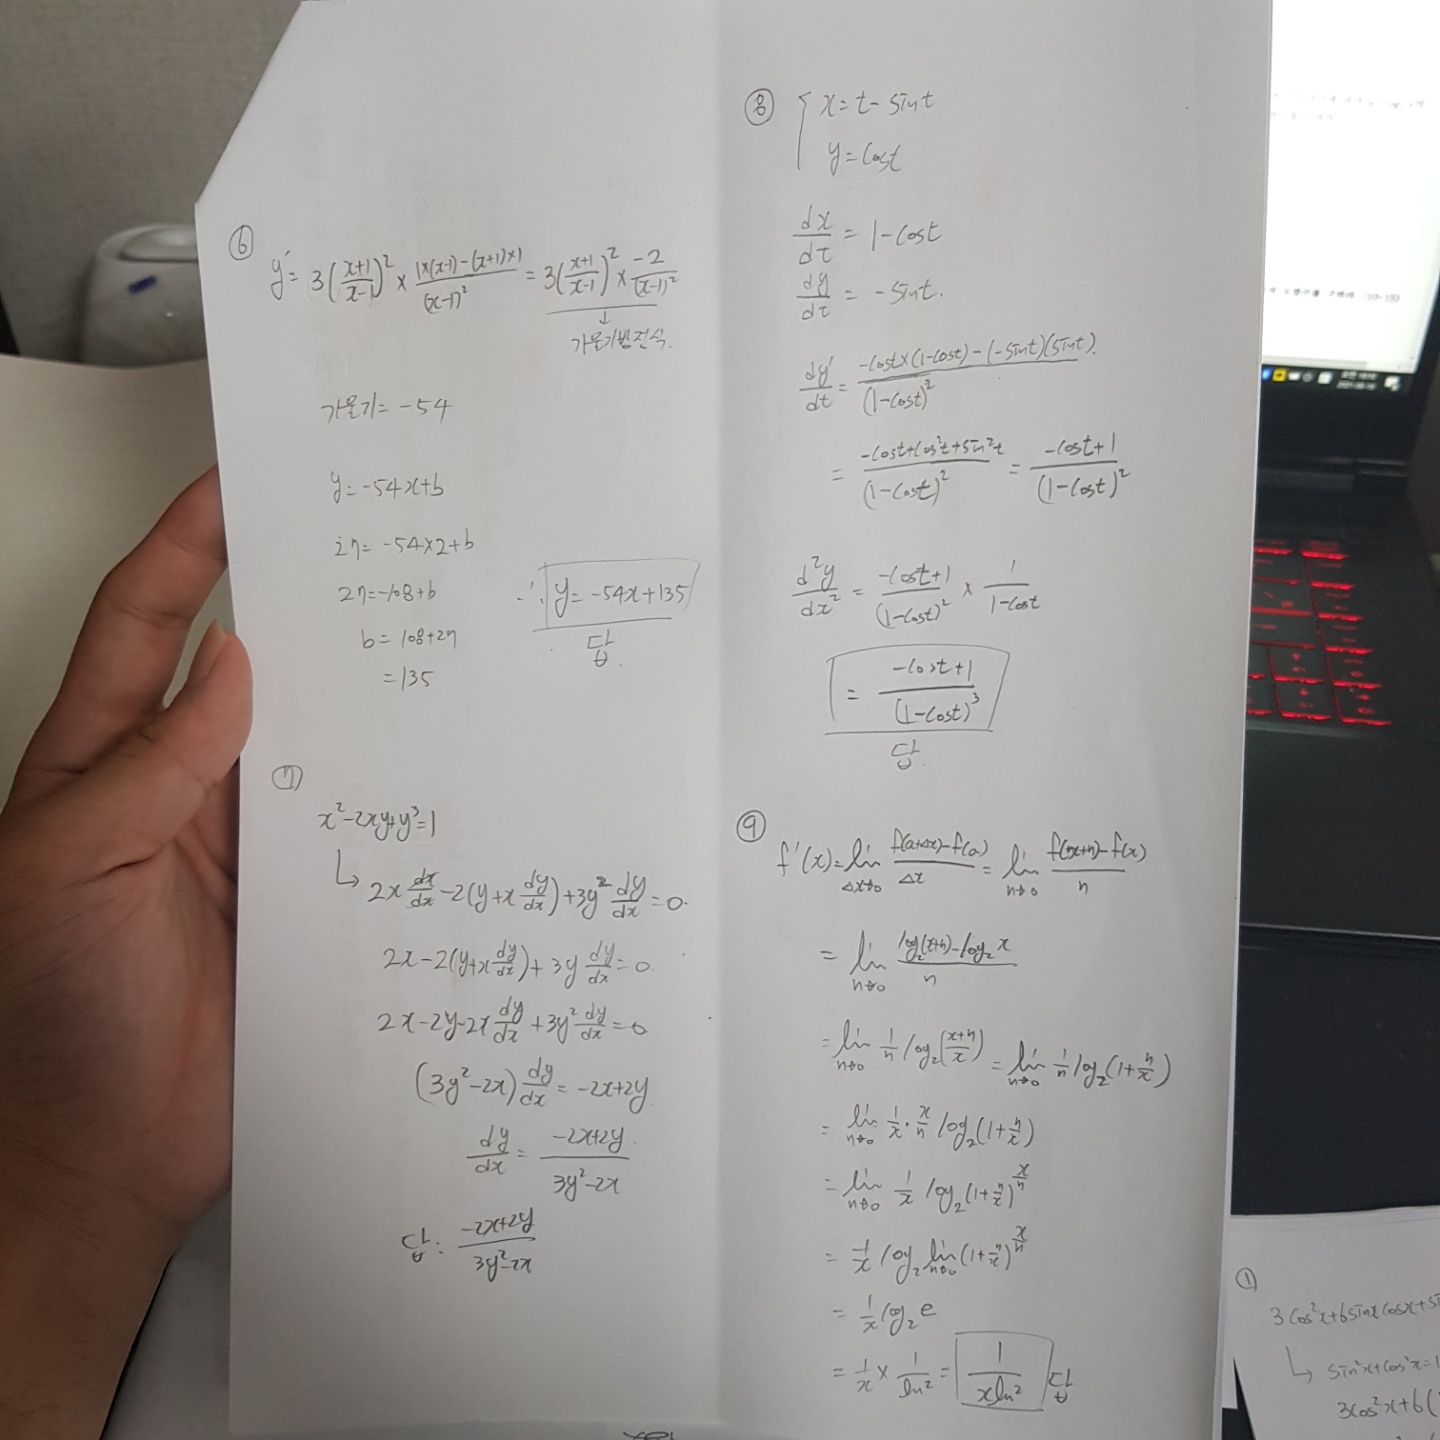 ⑥
y' = 3(\frac{x+1}{x-1})^2 × \frac{1×(x-1)-(x+1)×1}{(x-1)^2} = 3(\frac{x+1}{x-1})^2 × \frac{-2}{(x-1)^2}
↓
기울기 = -54
y = -54x+b
27 = -54×2+b
27 = -108+b
b = 108+27
= 135
∴ y = -54x+135
답
⑦
x^2-2xy+y^3=1
↳ 2x\frac{dx}{dx} -2(y+x\frac{dy}{dx})+3y^2\frac{dy}{dx}=0.
2x-2(y+x\frac{dy}{dx})+3y\frac{dy}{dx}=0.
2x-2y-2x\frac{dy}{dx}+3y^2\frac{dy}{dx}=0
(3y^2-2x)\frac{dy}{dx}=-2x+2y
\frac{dy}{dx}=\frac{-2x+2y}{3y^2-2x}
답: \frac{-2x+2y}{3y^2-2x}
⑧
x=t-sint
y=cost
\frac{dx}{dt}=1-cost
\frac{dy}{dt}=-sint.
\frac{dy'}{dt}=\frac{-cost×(1-cost)-(-sint)(sint).}{(1-cost)^2}
=\frac{-cost+cos^2t+sin^2t}{(1-cost)^2}=\frac{-cost+1}{(1-cost)^2}
\frac{d^2y}{dx^2}=\frac{-cost+1}{(1-cost)^2}×\frac{1}{1-cost}
=\frac{-cost+1}{(1-cost)^3}
답
⑨
f'(x)=lim_{Δx→0}\frac{f(a+Δx)-f(a)}{Δx}=lim_{h→0}\frac{f(x+h)-f(x)}{h}
=lim_{h→0}\frac{log_2(x+h)-log_2x}{h}
=lim_{h→0}\frac{1}{h}log_2(\frac{x+h}{x})=lim_{h→0}\frac{1}{h}log_2(1+\frac{h}{x})
=lim_{h→0}\frac{1}{x}·\frac{x}{h}log_2(1+\frac{h}{x})
=lim_{h→0}\frac{1}{x}log_2(1+\frac{h}{x})^{\frac{x}{h}}
=\frac{1}{x}log_2lim_{h→0}(1+\frac{h}{x})^{\frac{x}{h}}
=\frac{1}{x}log_2e
=\frac{1}{x}×\frac{1}{ln2}=\frac{1}{xln2} 답
①
3cos^2x+6sinxcosx+
↳ sin^2x+cos^2x=1
3cos^2x+6(